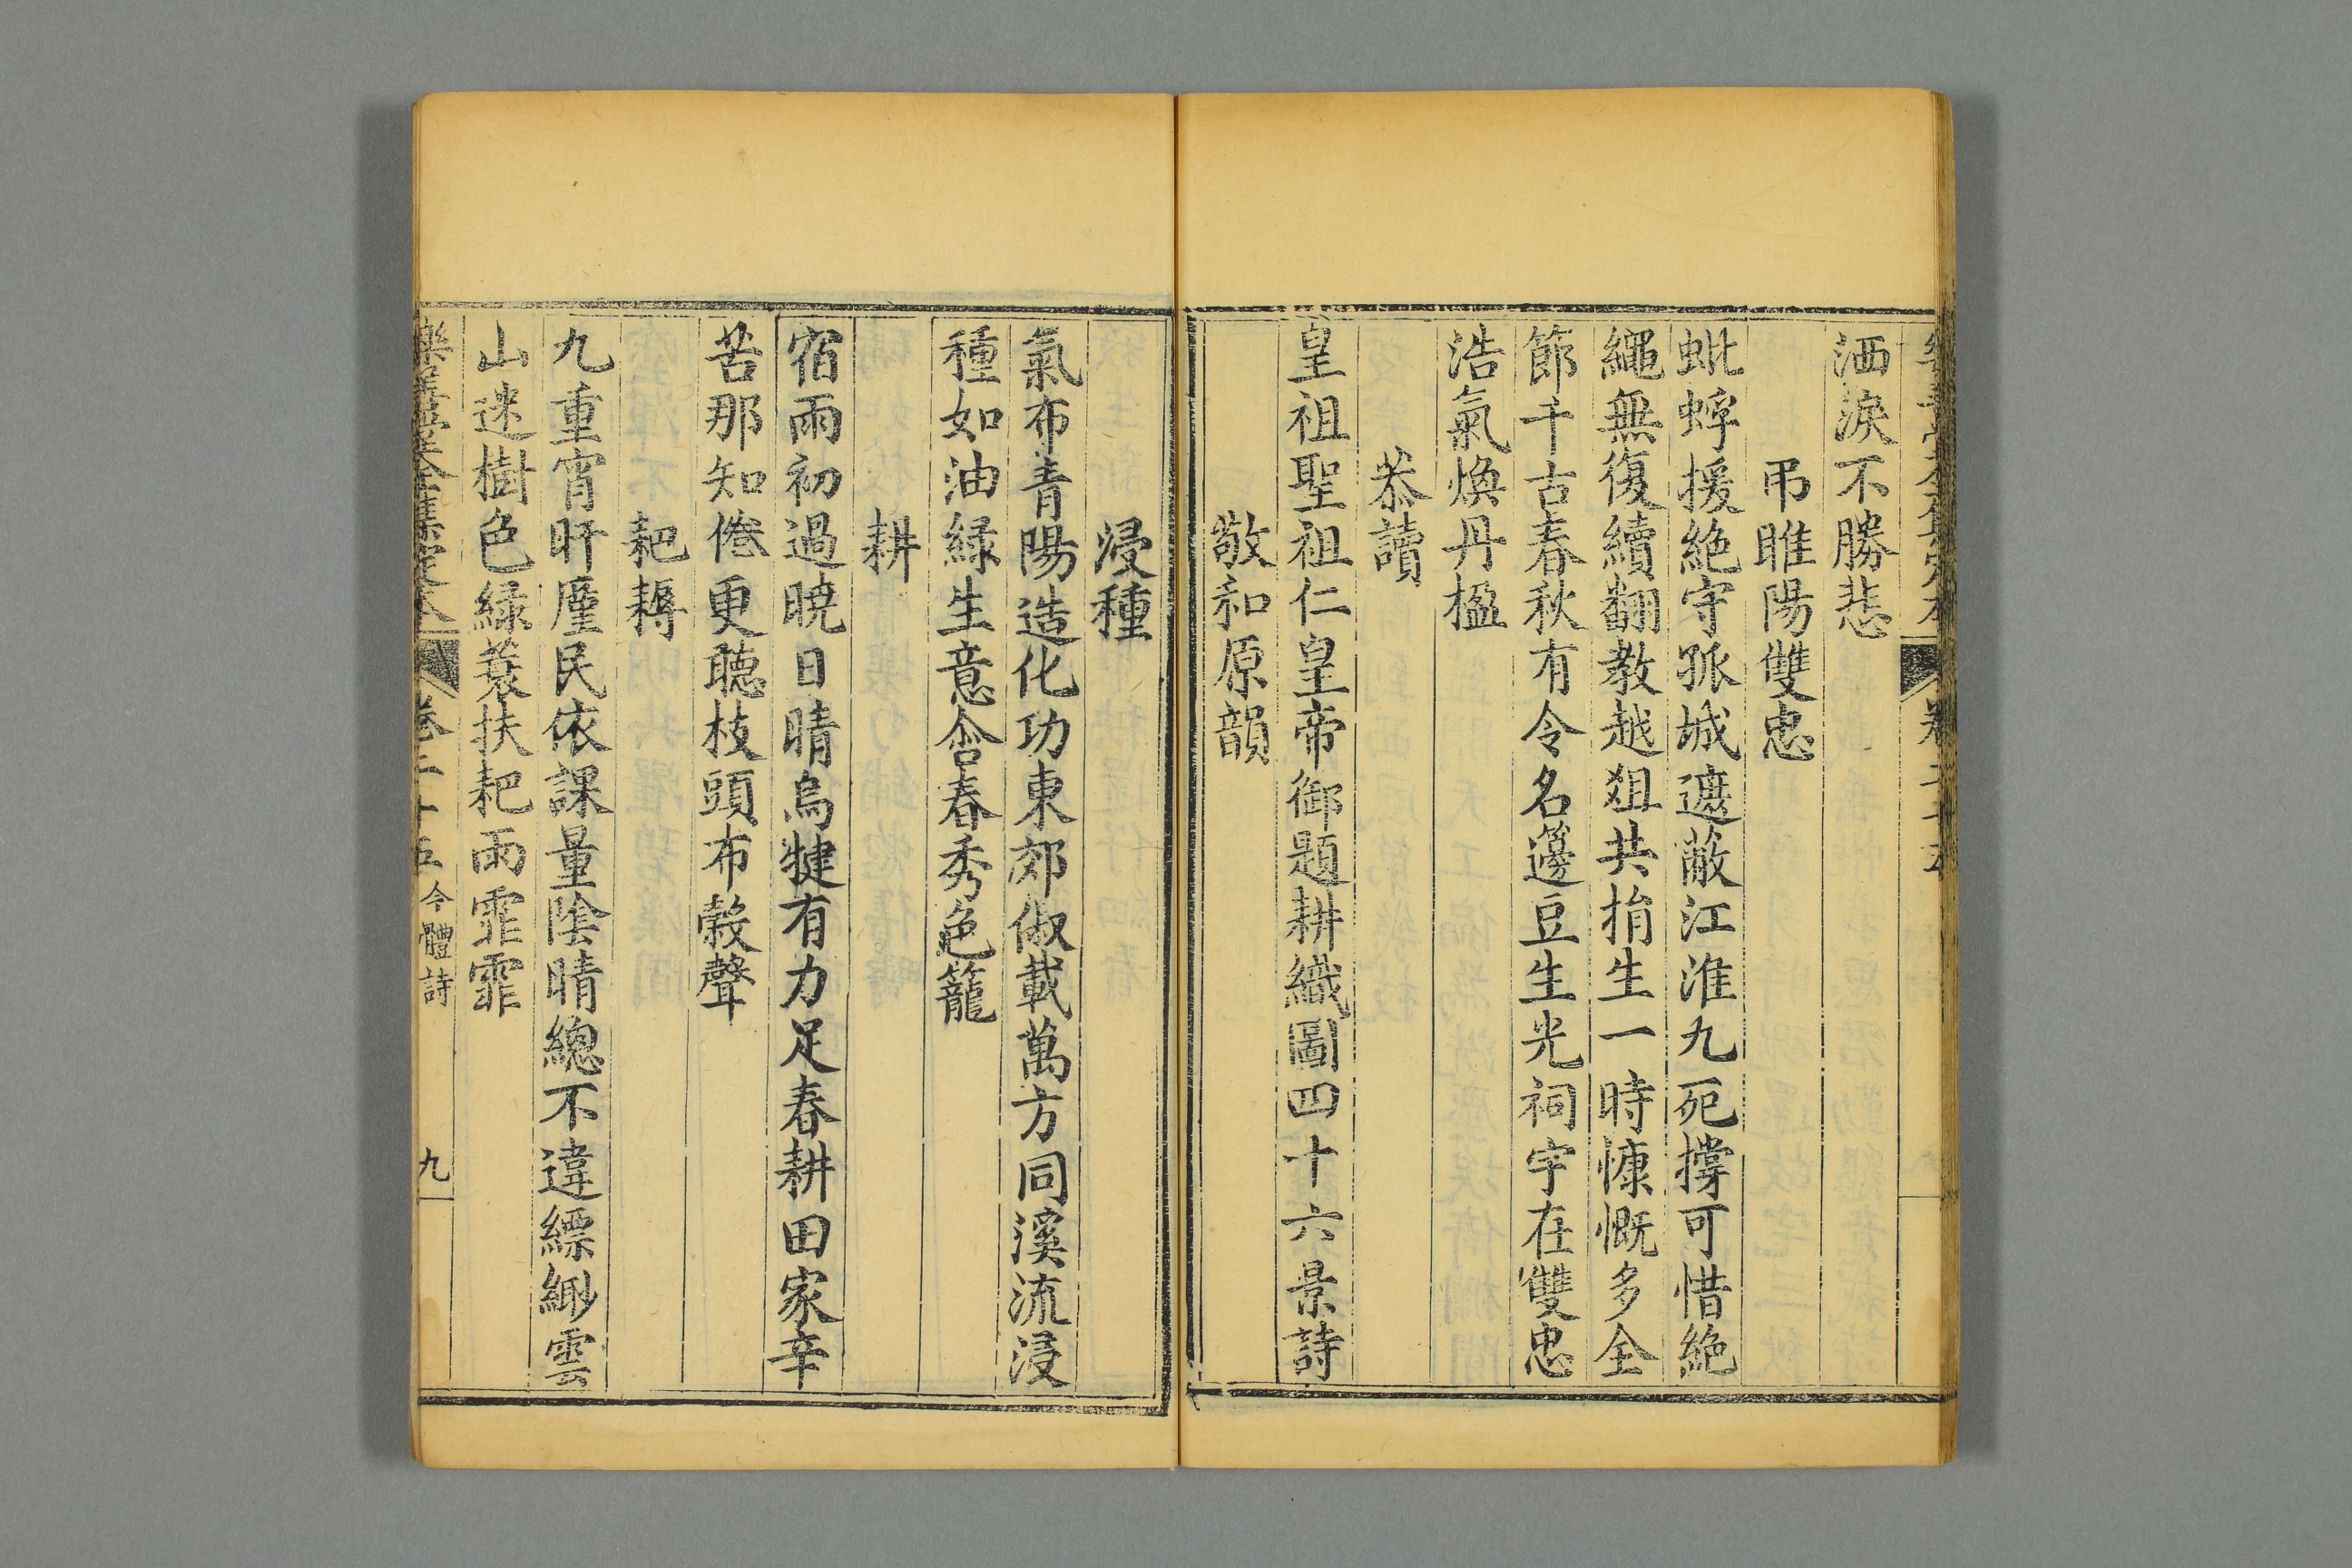 洒淚不勝悲
弔睢陽雙忠
蚍蜉援絶守孤城遮蔽江淮九死撐可惜絶
繩無復續翻教越俎共捐生一時慷慨多全
節千古春秋有令名籩豆生光祠宇在雙忠
浩氣煥丹楹
恭讀
皇祖聖祖仁皇帝御題耕織圖四十六景詩
敬和原韻
浸種
氣布青陽造化功東郊俶載萬方同溪流浸
種如油緑生意含春秀色籠
耕
宿雨初過曉日晴烏犍有力足春耕田家辛
苦那知倦更聽枝頭布穀聲
耙耨
九重宵旰廑民依課量陰晴總不違縹緲雲
山迷樹色緑蓑扶耙雨霏霏
樂善堂全集定本 卷二十五 今體詩 九